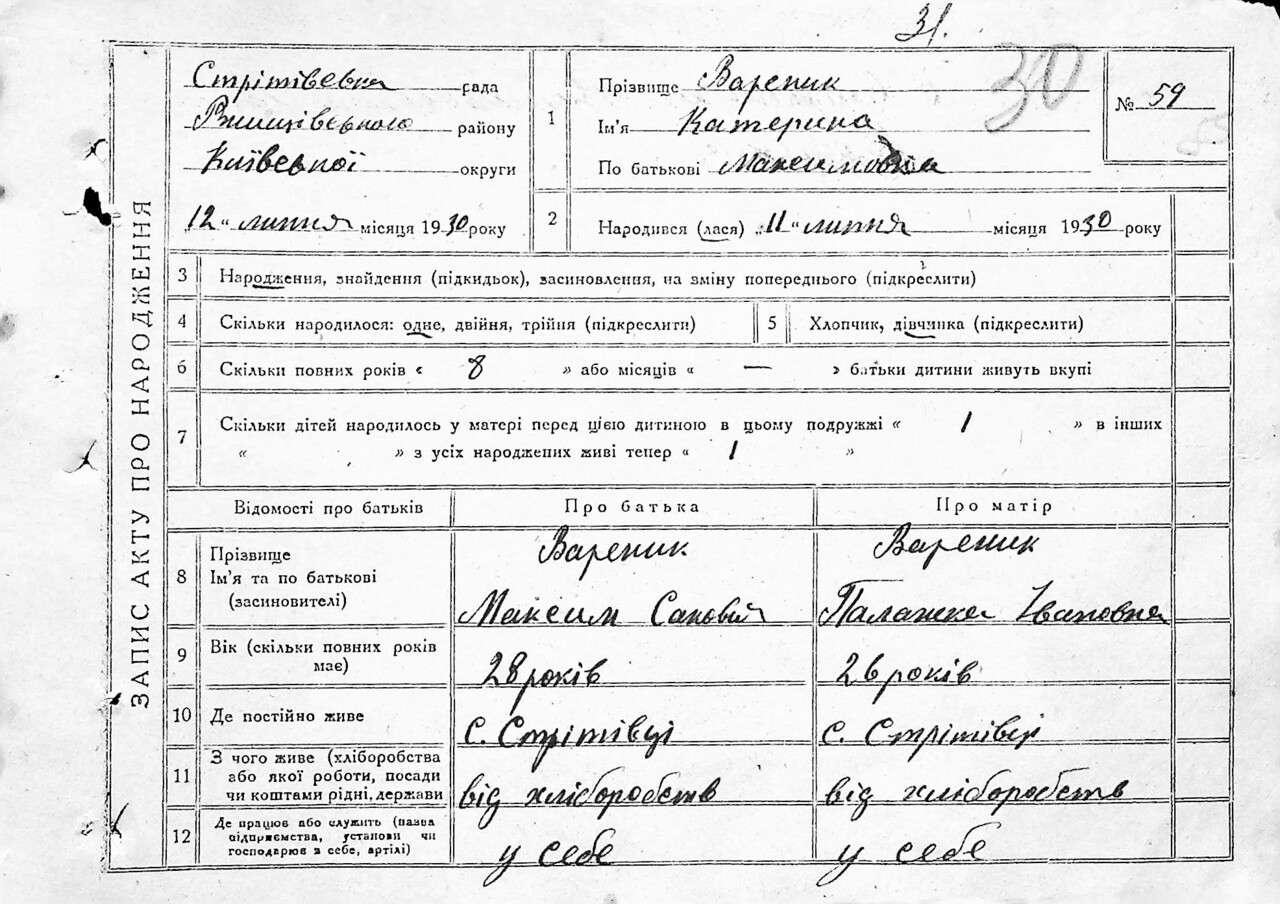 31.
30
ЗАПИС АКТУ ПРО НАРОДЖЕННЯ
Стрітівська рада
Ржищівського району
Київської округи
12 " липня місяця 1930 року
1 Прізвище Вареник
Ім'я Катерина
По батькові Максимовна
№ 59
2 Народився (лася) „ 11 " липня місяця 1930 року
3 Народження, знайдення (підкидьок), засиновлення, на зміну попереднього (підкреслити)
4 Скільки народилося: одне, двійня, трійня (підкреслити) 5 Хлопчик, дівчинка (підкреслити)
6 Скільки повних років « 8 » або місяців « — » батьки дитини живуть вкупі
7 Скільки дітей народилось у матері перед цією дитиною в цьому подружжі « 1 » в інших
« » з усіх народжених живі тепер « 1 »
Відомості про батьків Про батька Про матір
8 Прізвище Вареник Вареник
Ім'я та по батькові
(засиновителі) Максим Савовий Палажка Івановна
9 Вік (скільки повних років
має) 28 років 26 років
10 Де постійно живе с. Стрітівці с. Стрітівці
11 З чого живе (хліборобства
або якої роботи, посади
чи коштами рідні, держави від хліборобств від хліборобств
12 Де працює або служить (назва
підприємства, установи чи
господарює з себе, артілі) у себе у себе